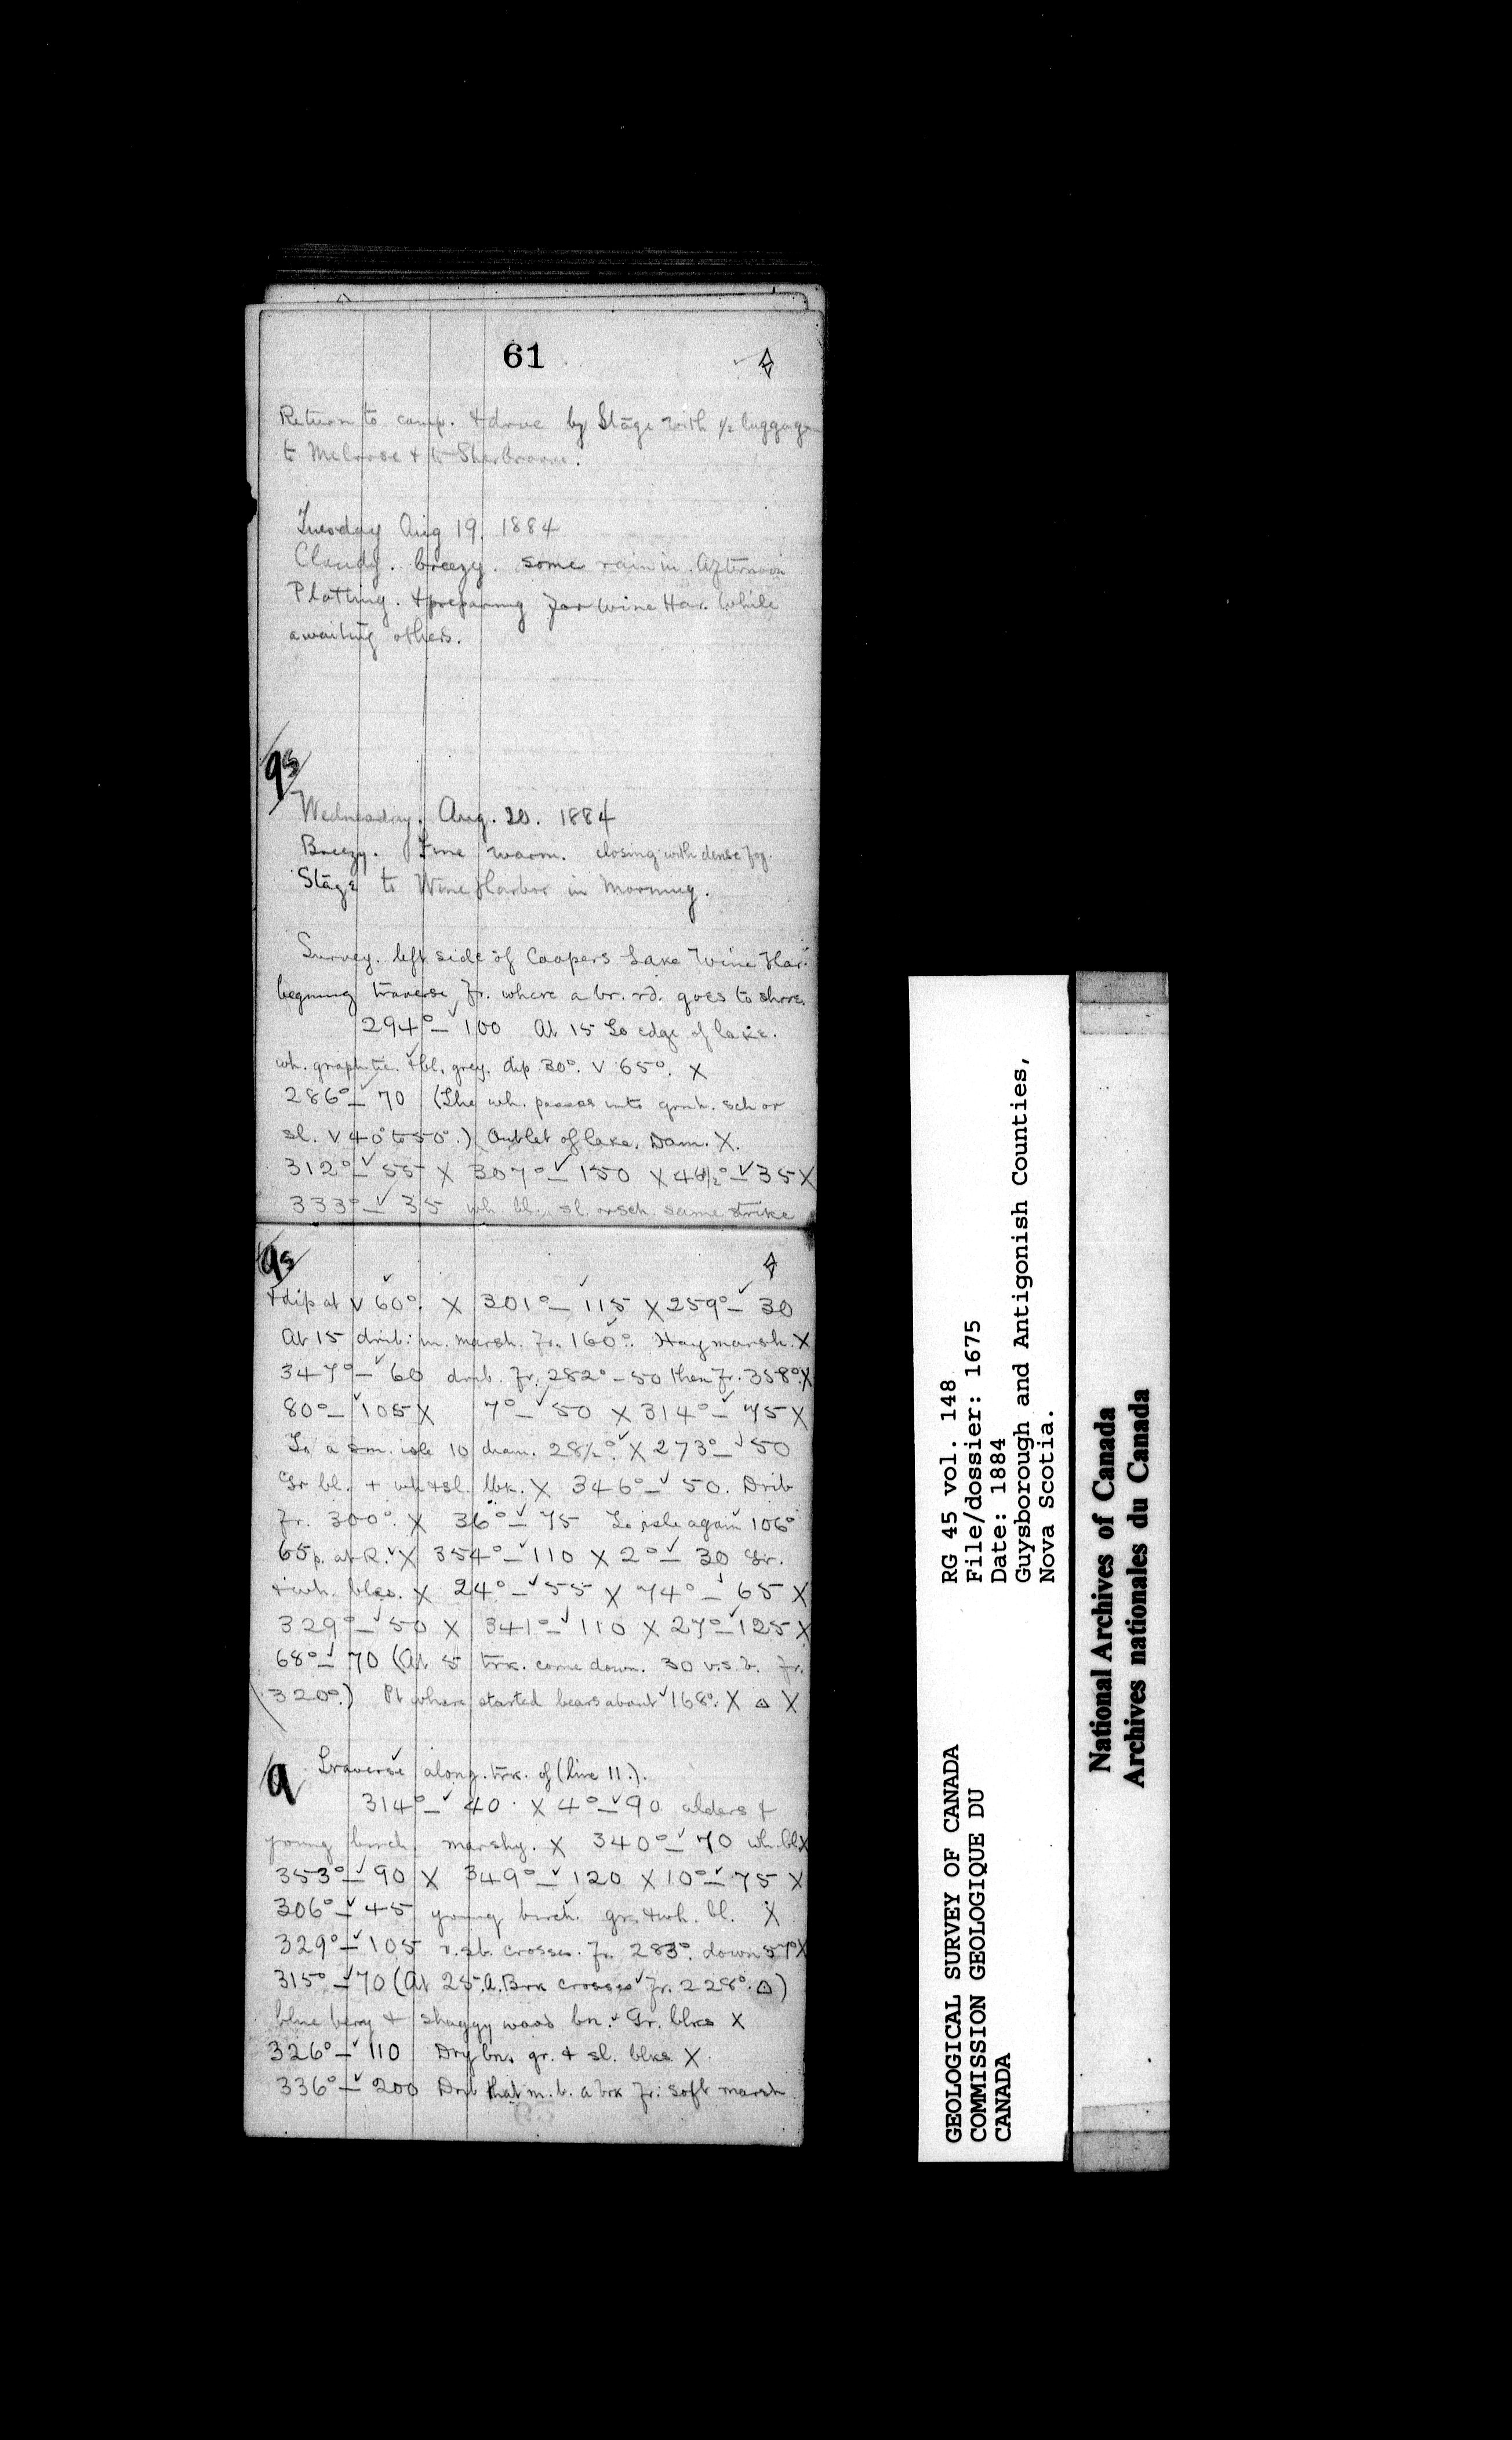 61
Return to camp. & drive by Stage with ½ luggage
to Melrose & to Sherbrooke.
Tuesday Aug 19. 1884
Cloudy. breezy. some rain in. Afternoon
Plotting. & preparing for Wine Har. while
awaiting others.
9s
Wednesday. Aug. 20. 1884
Breezy. Fine warm. closing with dense fog.
Stage to Wine Harbor in Morning.
Survey. left side of Coopers Lake Wine Har.
begining traverse, fr. where a br. rd. goes to shore.
294° – 100 At 15 To edge of lake.
wh. graphitic. & bl. grey. dip 30°. V 65°. X
286° – 70 (The wh. passes into grnh. sch or
sl. V 40° to 50°.) Outlet of lake. Dam. X.
312° – 55 X 307° – 150 X 48½° – 35 X
333° – 35 wh. bl. sl. or sch. same strike
9s
& dip at V 60°. X 301° – 115 X 259° – 30
At 15 drib. in. marsh. fr. 160°. Hay marsh. X
347° – 60 drib. fr. 282° – 50 then fr. 358° X
80° – 105 X 7° – 50 X 314° – 75 X
To a sm. isle 10 diam. 28½°. X 273° – 50
Gr bl. + wh & sl. blk. X 346° – 50. Drib
fr. 300°. X 36° – 75 To isle again 106°
65 p. at R. X 354° – 110 X 2° – 30 Gr.
& wh. blks. X 24° – 55 X 74° – 65 X
329° – 50 X 341° – 110 X 27° – 125 X
68° – 70 (At 5 trk. come down. 30 v.s.b. fr.
320°.) Pt where started bears about 168°. X △ X
9
Traverse along. trk. of (line 11.).
314° – 40 X 4° – 90 alders &
young birch. marshy. X 340° – 70 wh. bl X
353° – 90 X 349° – 120 X 10° – 75 X
306° – 45 young birch. gr. & wh. bl. X
329° – 105 v.sb. crosses. fr. 283°. down 57° X
315° – 70 (At 25. A. Brk crosses fr. 228°. △)
blue berry & shaggy wood bn. Gr. blks X
326° – 110 Dry bn. gr. & sl. blks X
336° – 200 Drib that m. b. a brk fr. soft marsh
GEOLOGICAL SURVEY OF CANADA
COMMISSION GEOLOGIQUE DU
CANADA
RG 45 vol. 148
File/dossier: 1675
Date: 1884
Guysborough and Antigonish Counties,
Nova Scotia.
National Archives of Canada
Archives nationales du Canada